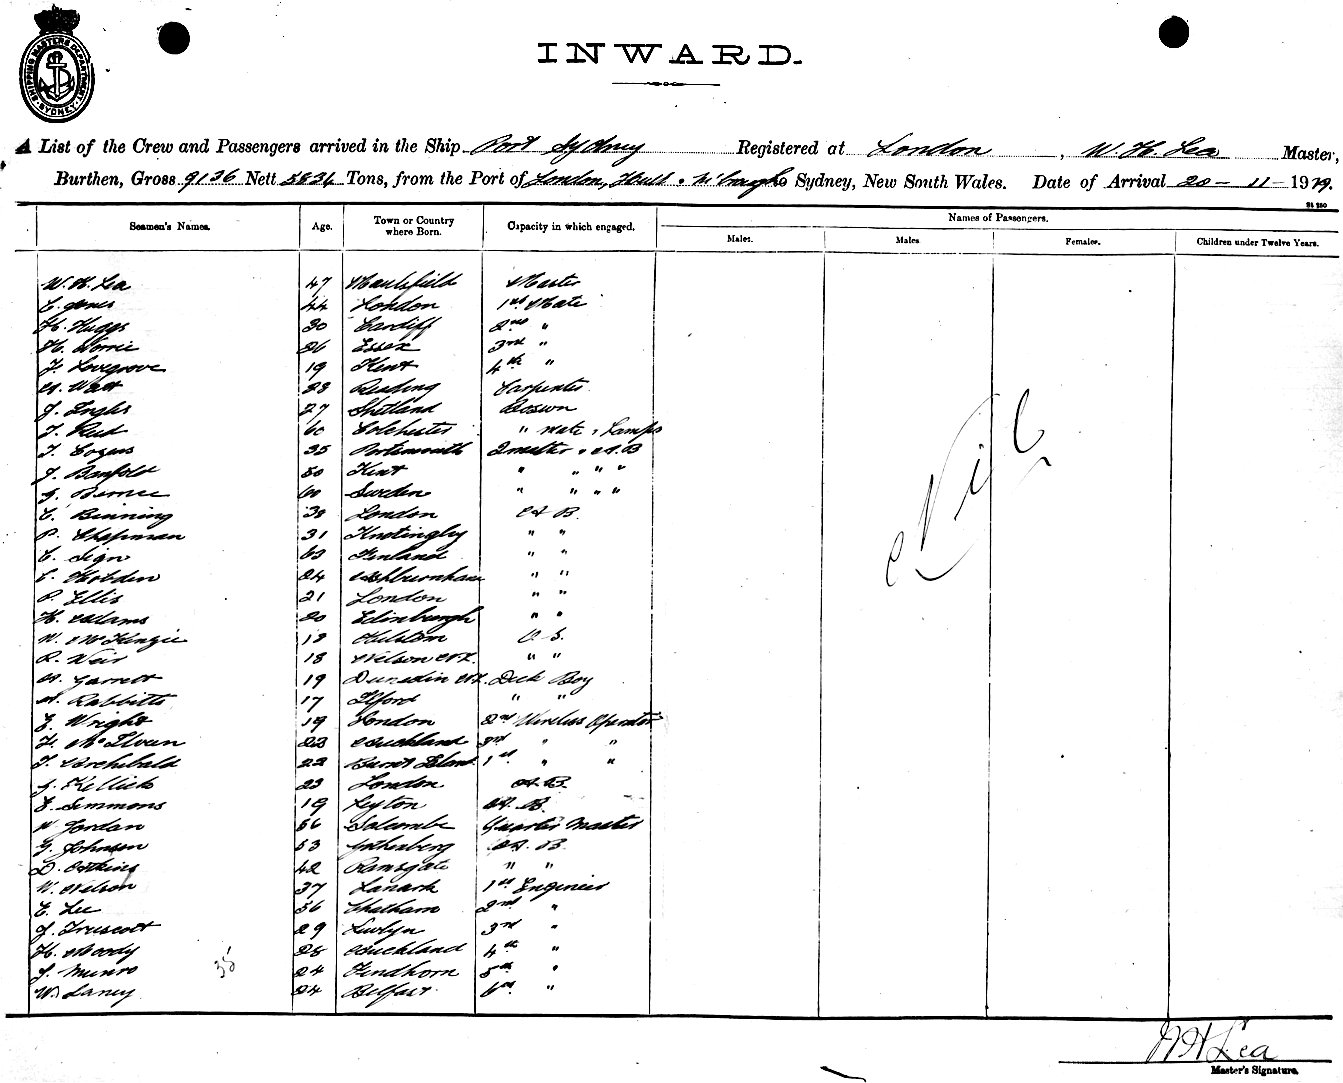 SHIPPING MASTERS DEPARTMENT SYDNEY
INWARD.
A List of the Crew and Passengers arrived in the Ship Port Sydney Registered at London, W. H. Lea Master,
Burthen, Gross 9136 Nett 5834 Tons, from the Port of London, Hull to Sydney, New South Wales. Date of Arrival 20-11-1919.
Names of Passengers.
Seamen's Names. Age. Town or Country where Born. Capacity in which engaged. Males. Males Females. Children under Twelve Years.
W. H. Lea 47 Master
C. Jones 44 London 1st Mate
H. Huggs 30 Cardiff 2nd "
H. 26 Essex 3rd "
F. Lovegrove 19 Kent 4th "
Watt Reading Carpenter
J. Inglis 27 Shetland Boswn
T. Reid 60 Colchester " mate & Lamps
T. Cogans 35 Portsmouth 2 master & A.B
J. Banfold 50 Kent " " " "
60 Sweden " " " "
C. Binning London A B.
P. Chapman 31 Knotingley " "
C. Sign 63 Finland " "
C. Hobden 24 Ashburnham " "
P. Ellis 21 London " "
H. Adams 20 Edinburgh " "
W. McKenzie 18 Helston O. S.
R. Weir 18 Nelson N.Z. " "
Garrett 19 Dunedin N.Z. Deck Boy
Rabbitts 17 Ilford " "
E. Wright 19 London 2nd Wireless Operator
F. McIlveen 23 Auckland 3rd " "
T. Archibald 22 Burnt Island 1st " "
Kellick 23 London A.B.
E. Simmons 19 Leyton A. B.
W. Jordan 56 Salcombe Quarter Master
G. Johnson 53 Gothenberg A. B.
D. Atkins 42 Ramsgate " "
W. Nelson 37 Lanark 1st Engineer
C. Lee 36 Chatham 2nd "
J. Truscott 29 3rd "
H. Moody 28 Auckland 4th "
J. Munro 24 Findhorn 5th "
W. Laney 24 Belfast 6th "
35
Nil
W H Lea
Master's Signature.